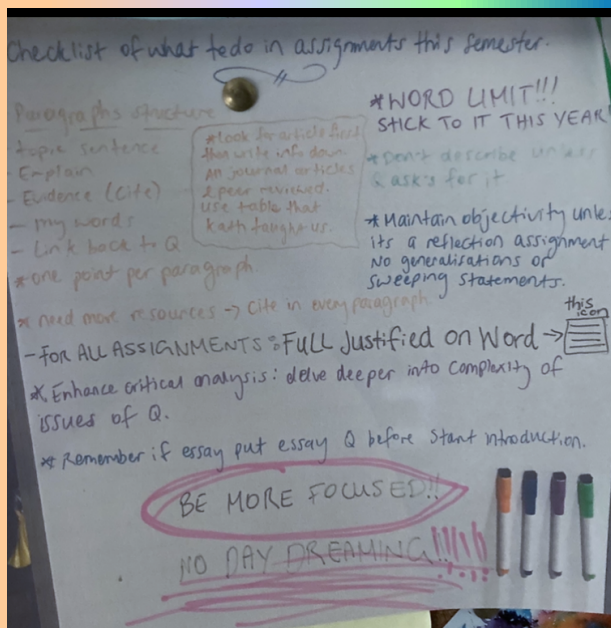 Checklist of what to do in assignments this semester.
Paragraphs structure
- topic sentence
- Explain
- Evidence (Cite)
- my words
- Link back to Q
* one point per paragraph.
* Look for article first
then write info down.
journal articles
& peer reviewed.
use table that
Kath taught us.
* WORD LIMIT!!!
STICK TO IT THIS YEAR!
* Don't describe unless
Q ask's for it
* Maintain objectivity unles
its a reflection assignment
No generalisations or
sweeping statements.
* need more resources -> Cite in every paragraph.
- FOR ALL ASSIGNMENTS: FULL Justified on Word ->
this
icon
* Enhance critical analysis: delve deeper into complexity of
issues of Q.
* Remember if essay put essay Q before start introduction.
BE MORE FOCUSED!!
NO DAY DREAMING!!!!!!